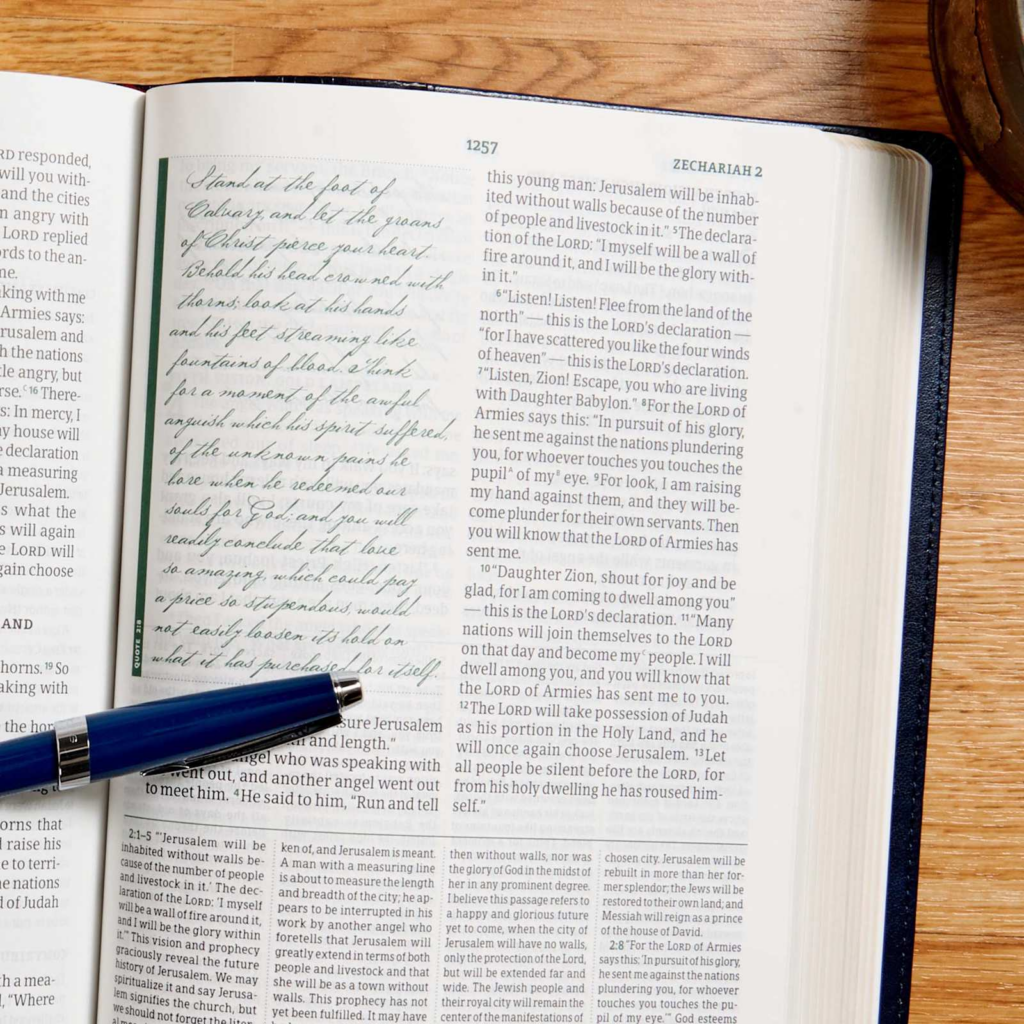 RD responded,
will you with-
and the cities
n angry with
LORD replied
ords to the an-
me.
king with me
Armies says:
rusalem and
h the nations
tle angry, but
rse.ᶜ ¹⁶There-
s: In mercy, I
y house will
e declaration
a measuring
Jerusalem.
s what the
s will again
e LORD will
gain choose
AND
horns. ¹⁹So
aking with
the hor
orns that
l raise his
e to terri-
he nations
d of Judah
h a mea-
l, “Where
1257
ZECHARIAH 2
Stand at the foot of
Calvary, and let the groans
of Christ pierce your heart.
Behold his head crowned with
thorns; look at his hands
and his feet streaming like
fountains of blood. Think
for a moment of the awful
anguish which his spirit suffered,
of the unknown pains he
bore when he redeemed our
souls for God; and you will
readily conclude that love
so amazing, which could pay
a price so stupendous, would
not easily loosen its hold on
what it has purchased for itself.
QUOTE 2:8
sure Jerusalem
and length.”
ngel who was speaking with
went out, and another angel went out
to meet him. ⁴He said to him, “Run and tell
this young man: Jerusalem will be inhab-
ited without walls because of the number
of people and livestock in it.” ⁵The declara-
tion of the LORD: “I myself will be a wall of
fire around it, and I will be the glory with-
in it.”
⁶“Listen! Listen! Flee from the land of the
north” — this is the LORD’s declaration —
“for I have scattered you like the four winds
of heaven” — this is the LORD’s declaration.
⁷“Listen, Zion! Escape, you who are living
with Daughter Babylon.” ⁸For the LORD of
Armies says this: “In pursuit of his glory,
he sent me against the nations plundering
you, for whoever touches you touches the
pupilᴬ of myᴮ eye. ⁹For look, I am raising
my hand against them, and they will be-
come plunder for their own servants. Then
you will know that the LORD of Armies has
sent me.
¹⁰“Daughter Zion, shout for joy and be
glad, for I am coming to dwell among you”
— this is the LORD’s declaration. ¹¹“Many
nations will join themselves to the LORD
on that day and become myᶜ people. I will
dwell among you, and you will know that
the LORD of Armies has sent me to you.
¹²The LORD will take possession of Judah
as his portion in the Holy Land, and he
will once again choose Jerusalem. ¹³Let
all people be silent before the LORD, for
from his holy dwelling he has roused him-
self.”
2:1–5 “‘Jerusalem will be
inhabited without walls be-
cause of the number of people
and livestock in it.’ The dec-
laration of the LORD: ‘I myself
will be a wall of fire around it,
and I will be the glory within
it.’” This vision and prophecy
graciously reveal the future
history of Jerusalem. We may
spiritualize it and say Jerusa-
lem signifies the church, but
we should not forget the liter-
ken of, and Jerusalem is meant.
A man with a measuring line
is about to measure the length
and breadth of the city; he ap-
pears to be interrupted in his
work by another angel who
foretells that Jerusalem will
greatly extend in terms of both
people and livestock and that
she will be as a town without
walls. This prophecy has not
yet been fulfilled. It may have
then without walls, nor was
the glory of God in the midst of
her in any prominent degree.
I believe this passage refers to
a happy and glorious future
yet to come, when the city of
Jerusalem will have no walls,
only the protection of the Lord,
but will be extended far and
wide. The Jewish people and
their royal city will remain the
center of the manifestations of
chosen city. Jerusalem will be
rebuilt in more than her for-
mer splendor; the Jews will be
restored to their own land; and
Messiah will reign as a prince
of the house of David.
2:8 “For the LORD of Armies
says this: ‘In pursuit of his glory,
he sent me against the nations
plundering you, for whoever
touches you touches the pu-
pil of my eye.’” God esteems